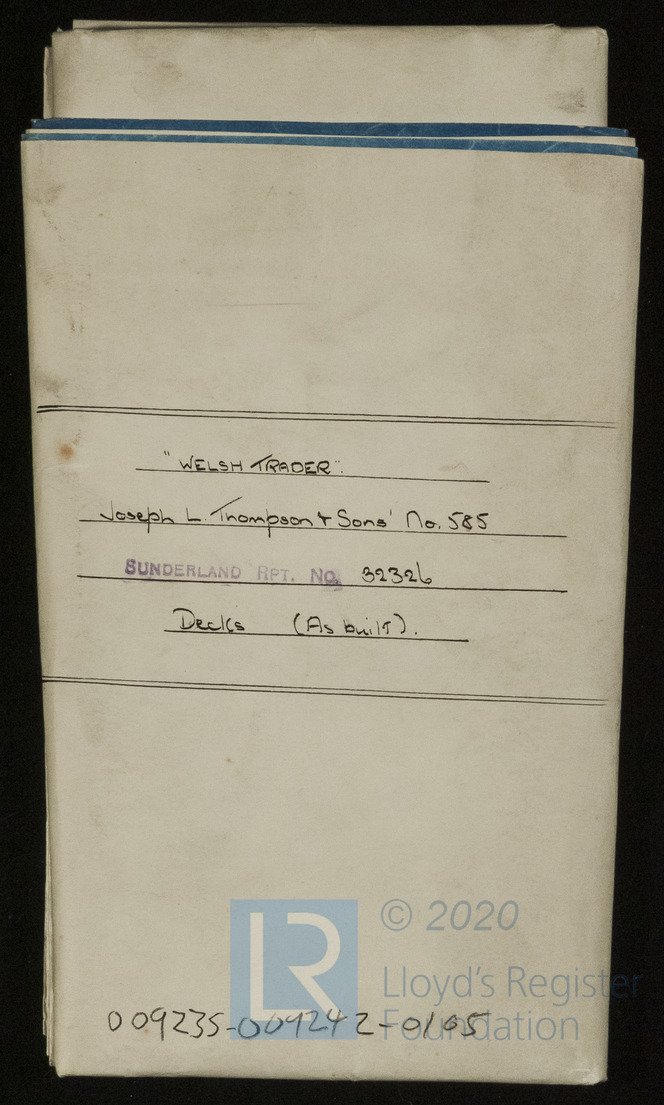 "WELSH TRADER".
Joseph L. Thompson & Sons' No. 585
SUNDERLAND RPT. NO. 32326
Decks (As built).
LR
© 2020
Lloyd's Register
Foundation
009235-009242-0105